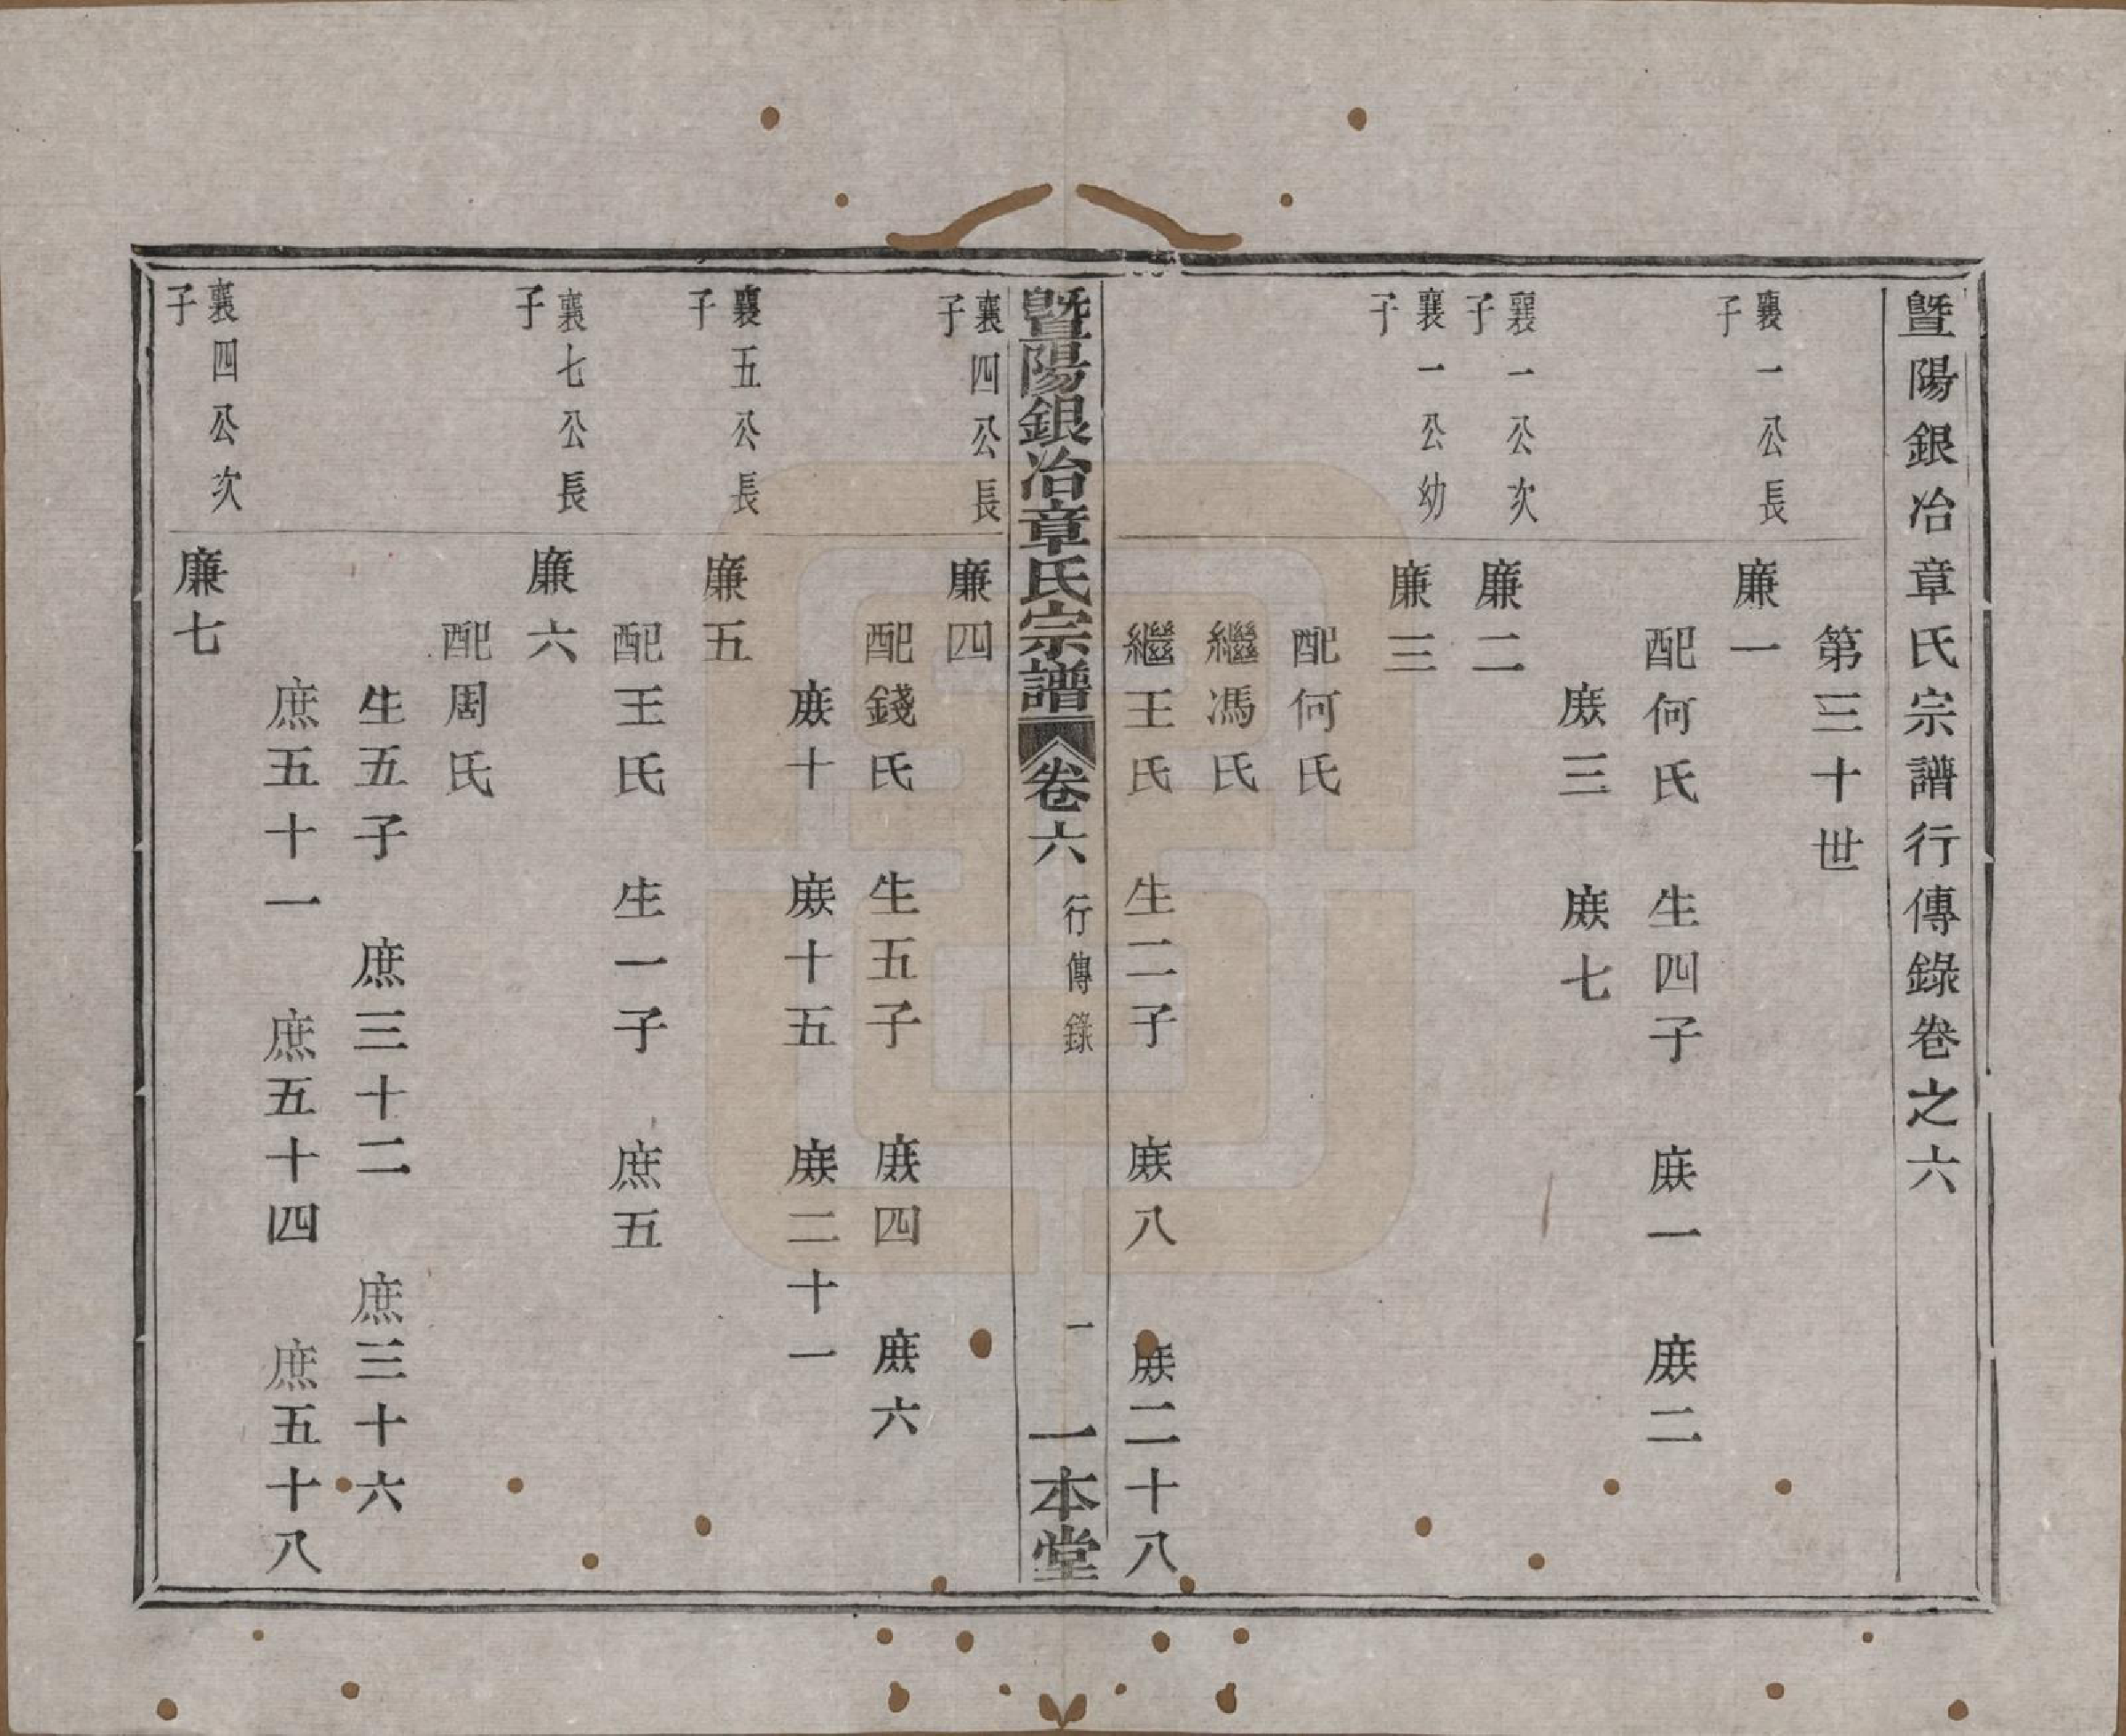 暨陽銀冶章氏宗譜行傳錄卷之六
第三十世
襄一公長子
廉一
配何氏 生四子 庻一 庻二
庻三 庻七
襄一公次子
廉二
襄一公幼子
廉三
配何氏
繼馮氏
繼王氏 生二子 庻八 庻二十八
暨陽銀冶章氏宗譜 卷六 行傳錄 一 一本堂
襄四公長子
廉四
配錢氏 生五子 庻四 庻六
庻十 庻十五 庻二十一
襄五公長子
廉五
配王氏 生一子 庶五
襄七公長子
廉六
配周氏
生五子 庶三十二 庶三十六
庶五十一 庶五十四 庶五十八
襄四公次子
廉七